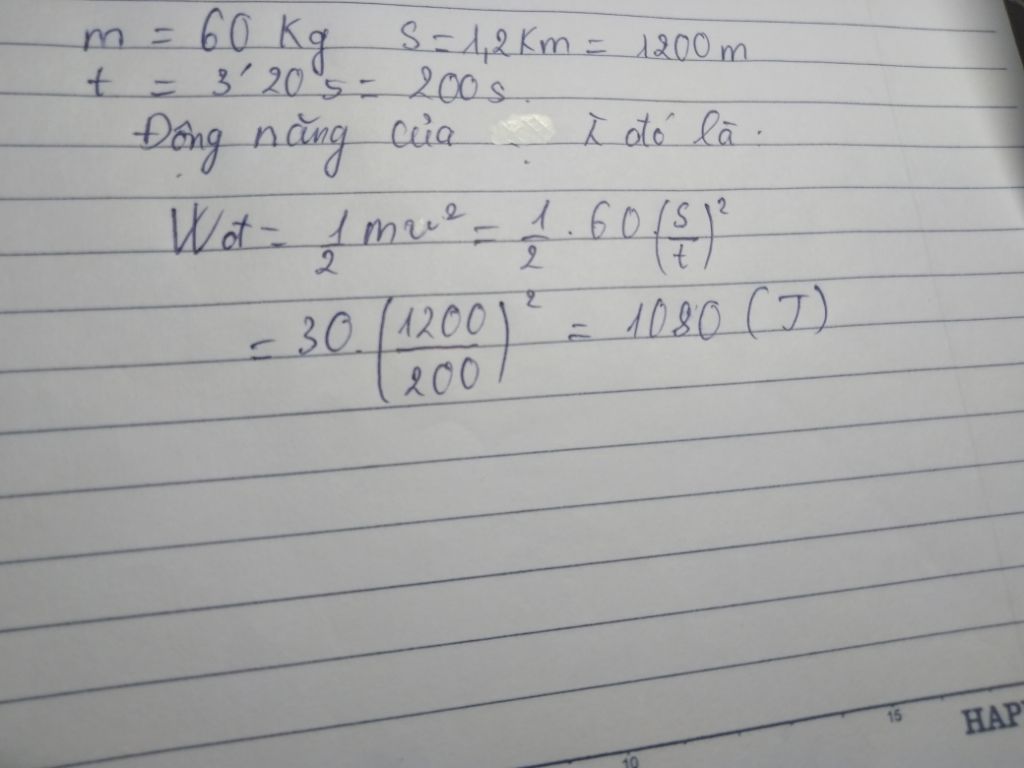 m = 60 Kg S = 1,2 Km = 1200 m
t = 3' 20 s = 200 s.
Động năng của đó là :
Wđ = 1/2 mv² = 1/2 . 60 (S/t)²
= 30. (1200/200)² = 1080 (J)
15
10